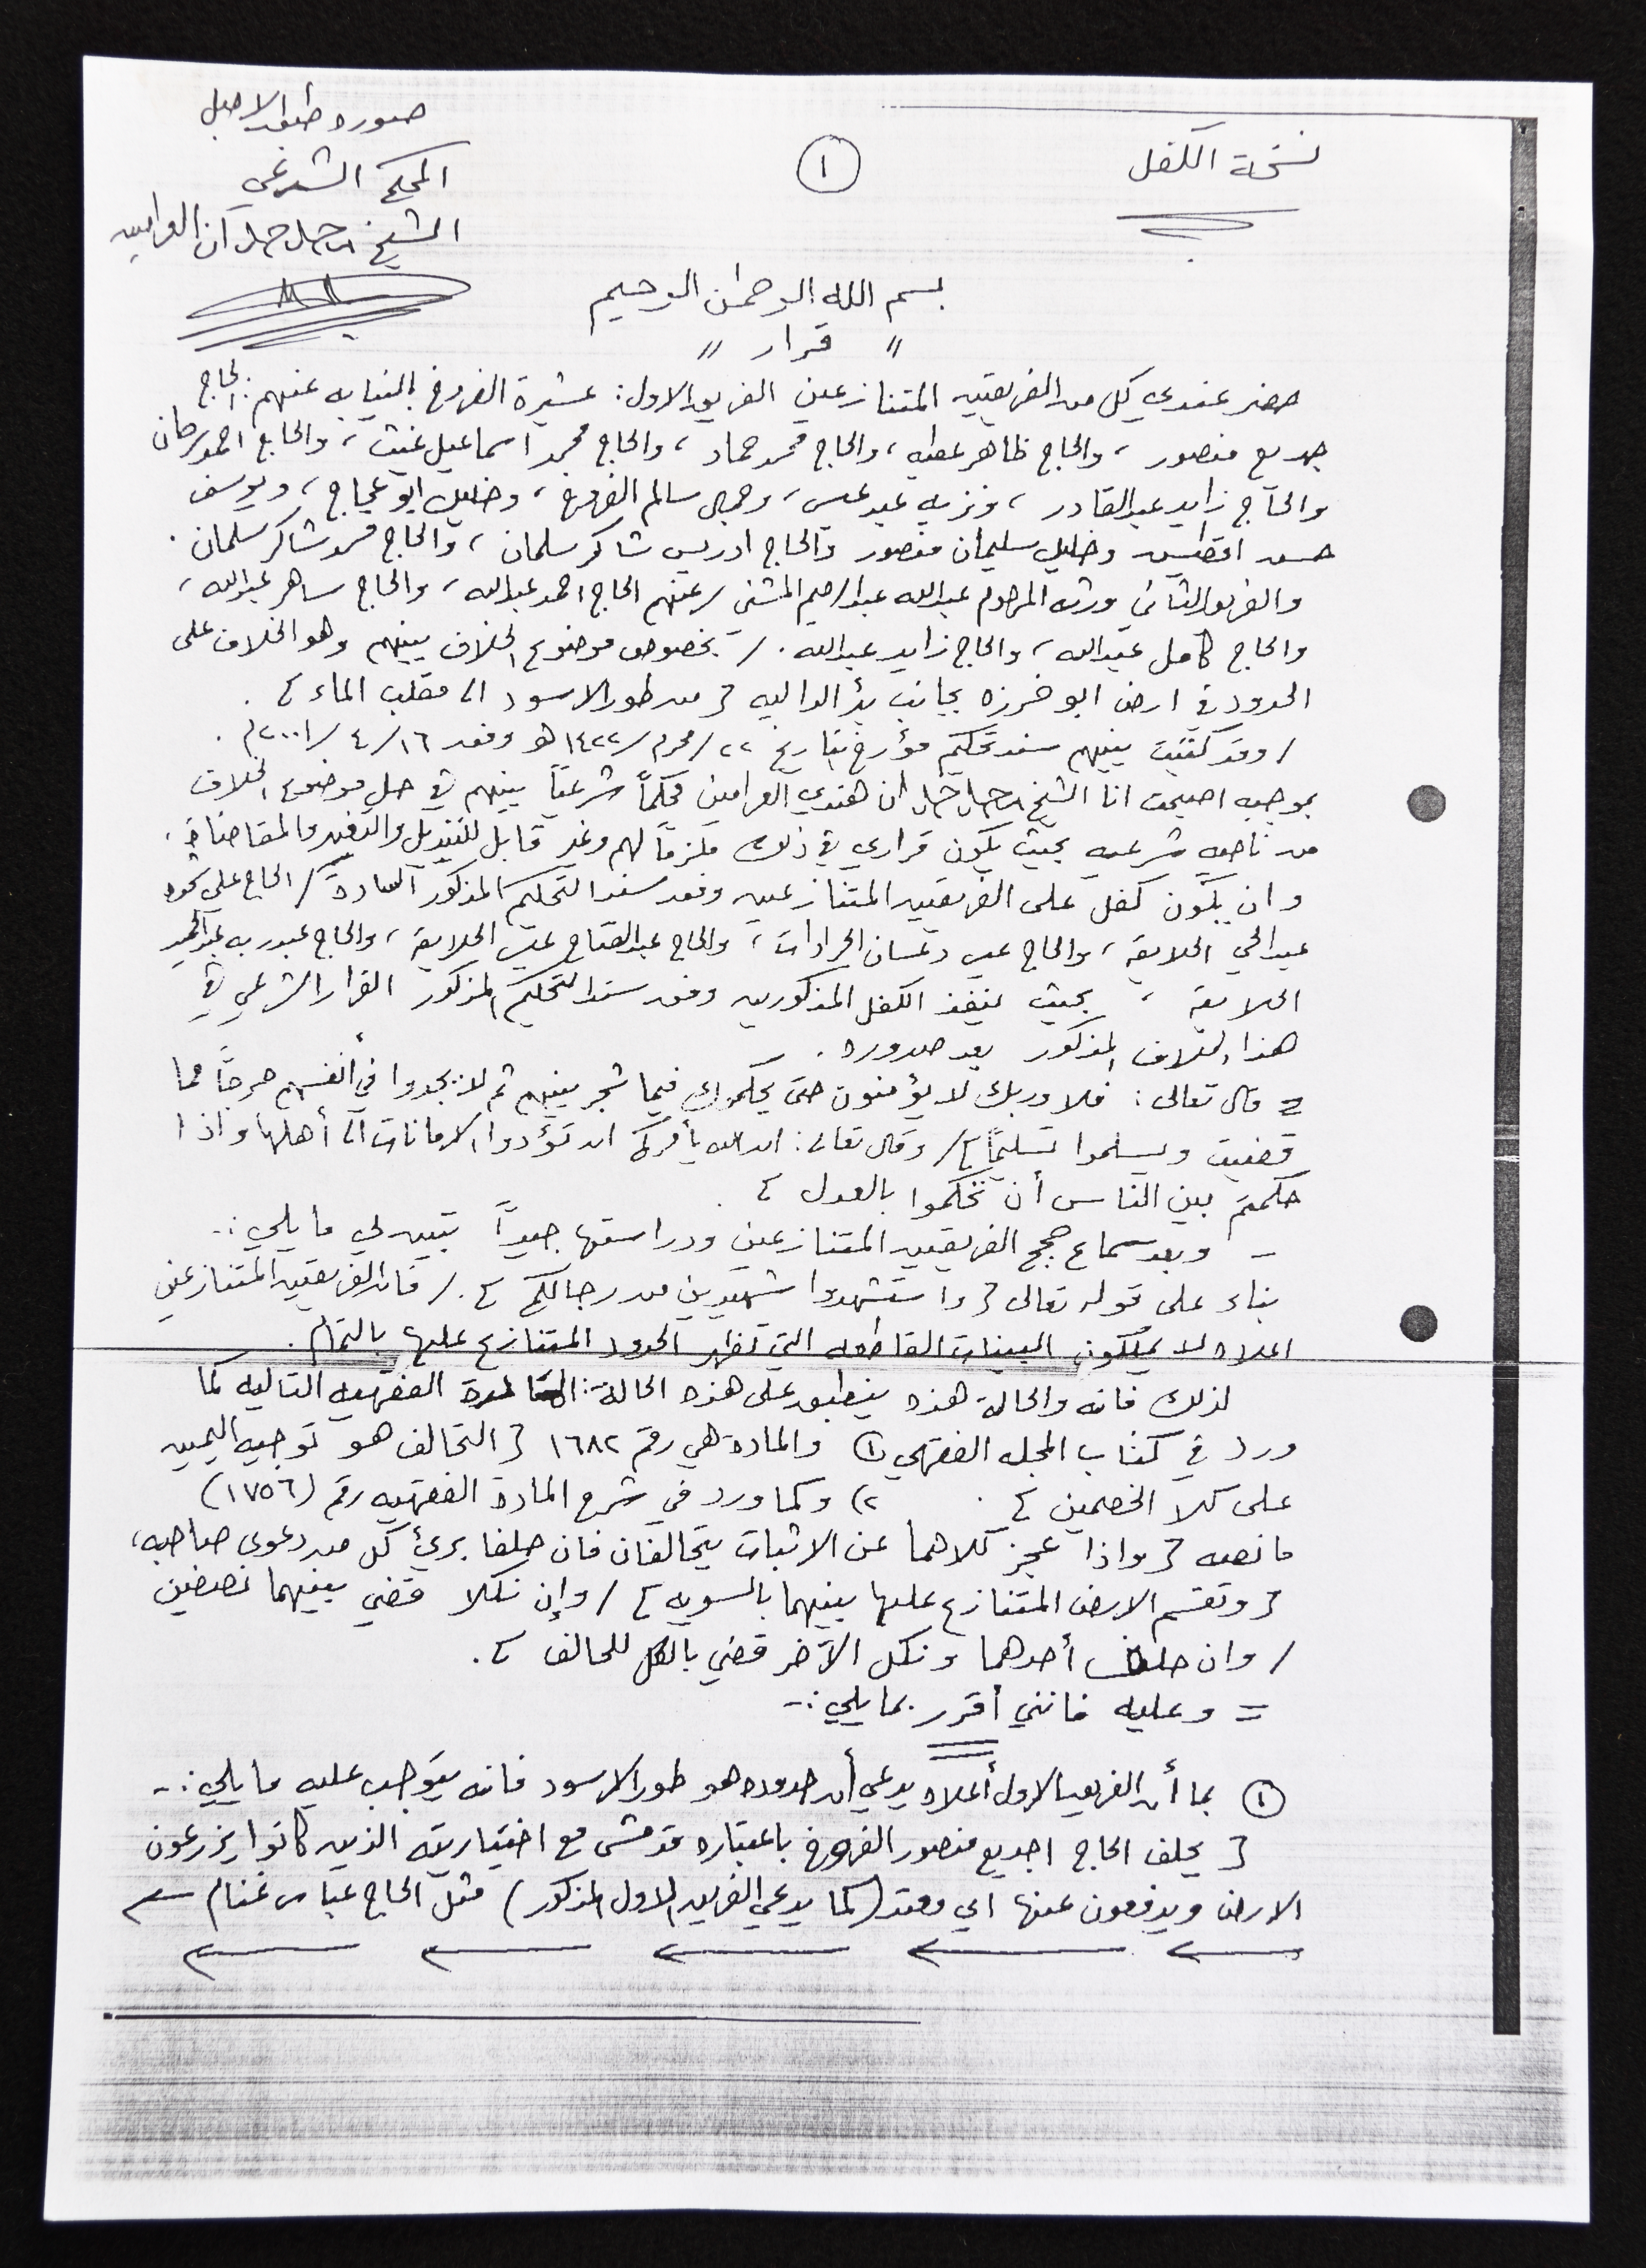 نسخة الكفل
١
صورة طبق الاصل
المحكم الشرعي
الشيخ
بسم الله الرحمن الرحيم
" قرار "
حضر عندي كل من الفريقين المتنازعين الفريق الاول: عشيرة الفروخ بالنيابه عنهم: الحاج
جديع منصور ، والحاج ظاهر عطيه ، والحاج محمد حماد ، والحاج محمد اسماعيل غيث ، والحاج احمد سرحان
والحاج زايد عبد القادر ، ونزيه عبد عيسى ، وجمال سالم الفروخ ، وخليل ابو عجاج ، ويوسف
حسن وخليل سليمان منصور والحاج ادريس شاكر سلمان ، والحاج محمد شاكر سلمان .
والفريق الثاني ورثه المرحوم عبدالله عبد الرحيم المشني / عنهم الحاج احمد عبدالله ، والحاج ساهر عبدالله ،
والحاج كامل عبدالله ، والحاج زايد عبدالله . / بخصوص موضوع الخلاف بينهم وهو الخلاف على
الحدود في ارض ابو خرزه بجانب بئر الداليه { من طور الاسود الى مقلب الماء } .
/ وقد كتبت بينهم سند تحكيم مؤرخ بتاريخ ٢٢ / محرم / ١٤٢٢ هـ وفق ١٦ / ٤ / ٢٠٠١ م .
بموجبه اصبحت انا الشيخ هندي العرامين محكماً شرعياً بينهم في حل موضوع الخلاف
من ناحيه شرعيه بحيث يكون قراري في ذلك ملزماً لهم وغير قابل للتبديل والتغيير والمقاضاة .
وان يكون كفل على الفريقين المتنازعين وفق سند التحكيم المذكور السادة / الحاج علي محمود
عبد الحي الحلايقه ، والحاج عيسى دعسان الجرادات ، والحاج عبد الفتاح عيسى الحلايقة ، والحاج عبد ربه عبد الحميد
الحلايقه ، بحيث ينفذ الكفل المذكورين وفق سند التحكيم المذكور القرار الشرعي في
هذا الخلاف المذكور بعد صدوره .
= قال تعالى : فلا وربك لا يؤمنون حتى يحكموك فيما شجر بينهم ثم لا يجدوا في أنفسهم حرجاً مما
قضيت ويسلموا تسليماً } / وقال تعالى : ان الله يأمركم ان تؤدوا الامانات الى أهلها واذا
حكمتم بين الناس أن تحكموا بالعدل } .
- وبعد سماع حجج الفريقين المتنازعين ودراستها جيداً تبين لي ما يلي :-
بناء على قوله تعالى { واستشهدوا شهيدين من رجالكم } . / فان الفريقين المتنازعين
اعلاه لا يملكون البينات القاطعه التي تظهر الحدود المتنازع عليها بالتمام .
لذلك فانه والحالة هذه ينطبق على هذه الحالة : المادة الفقهيه التاليه كما
ورد في كتاب المجله الفقهي ١) والمادة هي رقم ١٦٨٢ { التحالف هو توجيه اليمين
على كلا الخصمين } . ٢) وكما ورد في شرح المادة الفقهيه رقم (١٧٥٦)
ما نصه { واذا عجز كلاهما عن الاثبات يتحالفان فان حلفا برئ كل من دعوى صاحبه ،
{ وتقسم الارض المتنازع عليها بينهما بالسويه } / وإن نكلا قضي بينهما نصفين
/ وان حلف أحدهما ونكل الآخر قضي بالكل للحالف } .
= وعليه فانني أقرر بما يلي :-
١ بما أن الفريق الاول أعلاه يدعي أن حدوده هو طور الاسود فانه يتوجب عليه ما يلي :-
{ يحلف الحاج اجديع منصور الفروخ باعتباره قد مشى مع اختياريته الذين كانوا يزرعون
الارض ويدفعون عنها اي (كما يدعي الفريق الاول المذكور) مثل الحاج عباس غنام